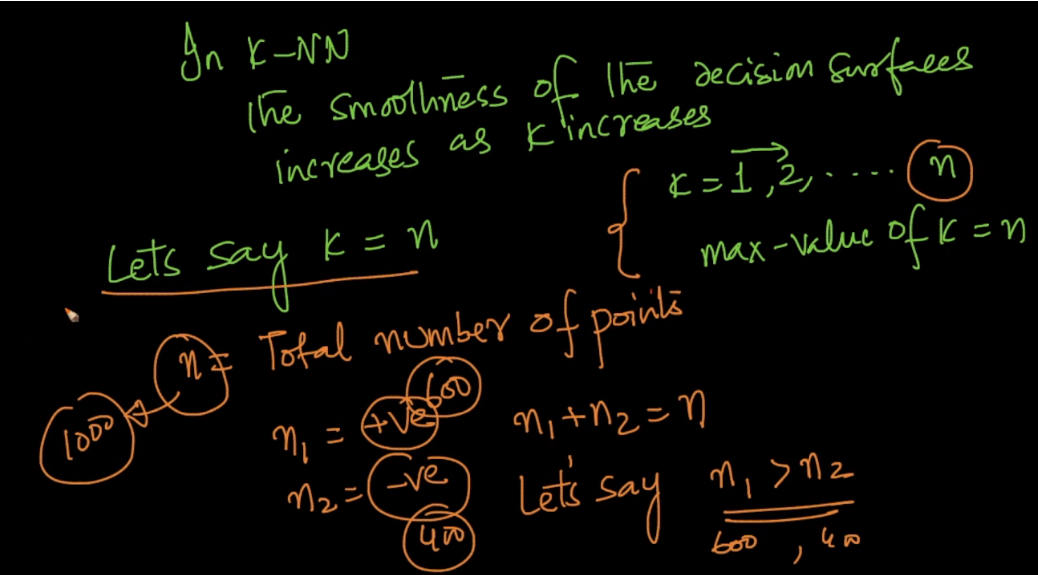 In K-NN
The smoothness of the decision surfaces
increases as K increases
K = 1, 2, ..... n
max-value of K = n
Lets say K = n
n = Total number of points
1000
n1 = +ve 600
n1 + n2 = n
n2 = -ve
400
Let's say n1 > n2
600, 400